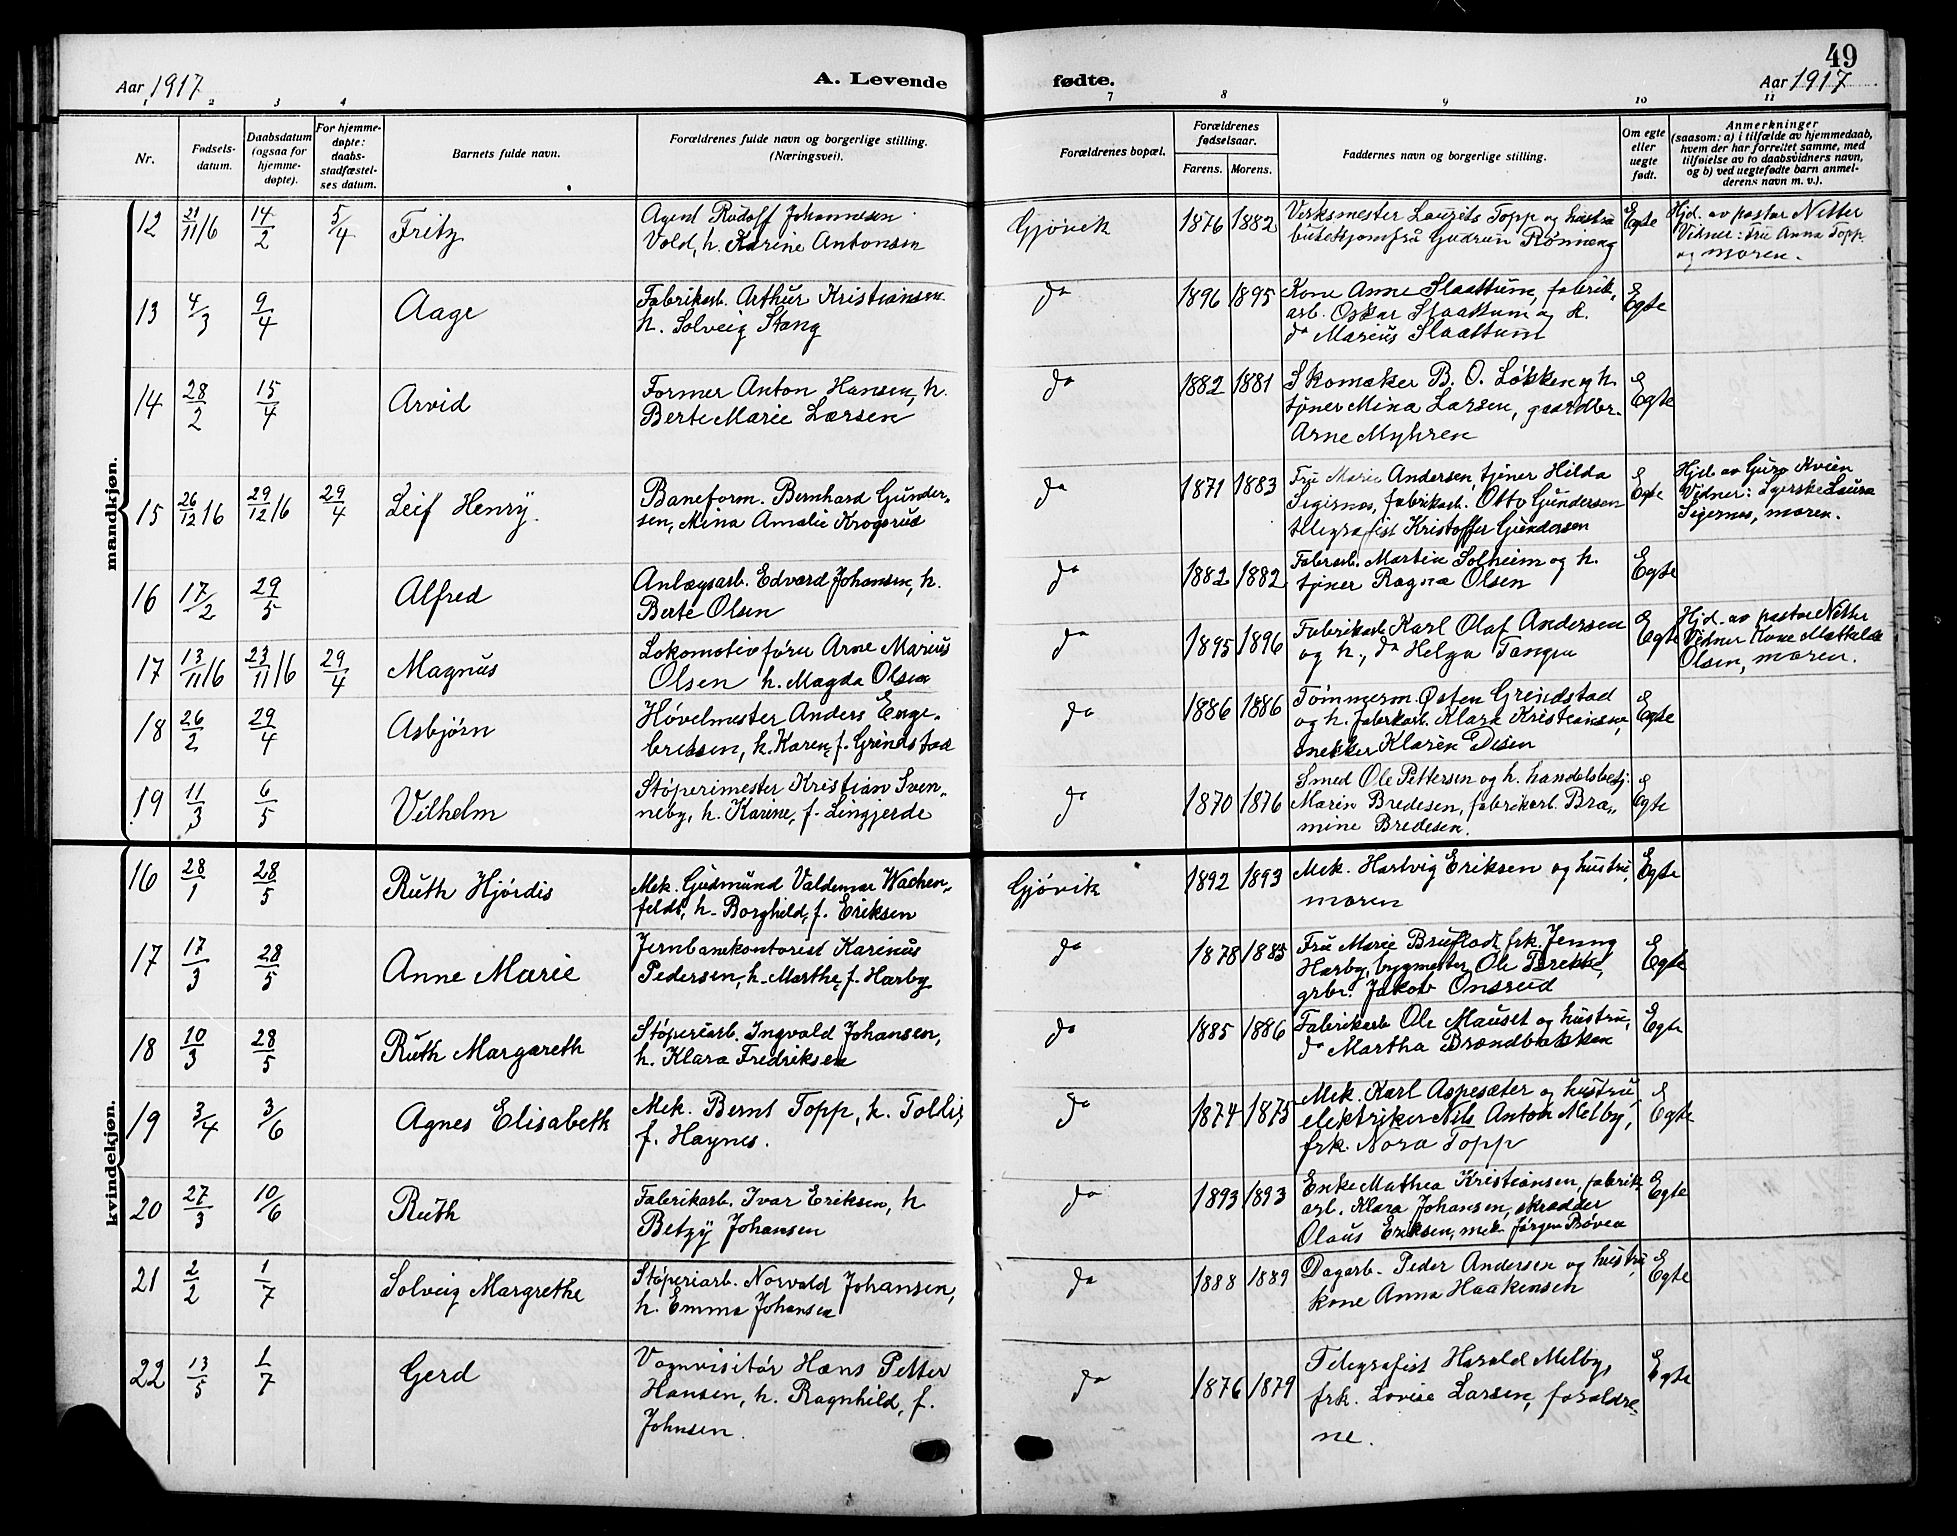 49
Aar 1917
A. Levende
fødte.
Aar 1917
1 2 3 4
7 8 9 10 11
Nr.
Fødsels-
datum.
Daabsdatum
(ogsaa for
hjemme-
døpte).
For hjemme-
døpte:
daabs-
stadfæstel-
ses datum.
Barnets fulde navn.
Forældrenes fulde navn og borgerlige stilling.
(Næringsvei).
Forældrenes bopæl.
Forældrenes
fødselsaar.
Farens. Morens.
Faddernes navn og borgerlige stilling.
Om egte
eller
uegte
født.
Anmerkninger
(saasom: a) i tilfælde av hjemmedaab,
hvem der har forrettet samme, med
tilføielse av to daabsvidners navn,
og b) ved uegtefødte barn anmel-
derens navn m. v.).
mandkjøn.
12 21/11 16 14/2 5/4 Fritz
Agent Rudolf Johannesen
Vold, h. Karine Antonsen
Gjøvik 1876 1882
Verksmester Lauritz Topp og hustru
butikjomfru Gudrun Rønning
Egte
Hjd. av pastor Nitter
Vidner: Fru Anna Topp
og moren.
13 4/3 9/4 Aage
Fabrikarb. Arthur Kristiansen
h. Solveig Stang
do 1896 1895
Kone Anne Slaattum, fabrik-
arb. Oskar Slaattum og h.
do Marius Slaattum
Egte
14 28/2 15/4 Arvid
Former Anton Hansen, h.
Berte Marie Larsen
do 1882 1881
Skomaker B. O. Løkken og h.
tjener Mina Larsen, gaardbr.
Arne Myhren
Egte
15 26/12 16 29/12 16 29/4 Leif Henry
Baneform. Bernhard Gunder-
sen, Mina Amalie Krogsrud
do 1871 1883
Fru Marie Andersen, tjener Hilda
Sigernes, fabrikarb. Otto Gundersen
telegrafist Kristoffer Gundersen
Egte
Hjd. av Guro Kvien
Vidner: Syerske Laura
Sigernes, moren.
16 17/2 29/5 Alfred
Anlægsarb. Edvard Johansen, h.
Berte Olsen
do 1882 1882
Fabrarb. Martin Solheim og h.
tjener Ragna Olsen
Egte
17 13/11 16 23/11 16 29/4 Magnus
Lokomotivfører Arne Marius
Olsen h. Magda Olsen
do 1895 1896
Fabrikarb. Karl Olaf Andersen
og h., do Helga Tangen
Egte
Hjd. av pastor Nitter
Vidner Kone Mathilde
Olsen, moren.
18 26/2 29/4 Asbjørn
Høvelmester Anders Enge-
bretsen, h. Karen, f. Grindstad
do 1886 1886
Tømmerm. Østen Grindstad
og h. fabrikarb. Klara Kristiansen,
snekker Klarin Disen
Egte
19 11/3 6/5 Vilhelm
Støperimester Kristian Sven-
neby, h. Karine, f. Lingjerde
do 1870 1876
Smed Ole Pettersen og h. handelsbetj.
Marin Bredesen, fabrikarb. Bra-
mine Bredesen.
Egte
kvindekjøn.
16 28/1 28/5 Ruth Hjørdis
Mek. Gudmund Valdemar Wachen-
feldt, h. Borghild, f. Eriksen
Gjøvik 1892 1893
Mek. Hartvig Eriksen og hustru,
moren
Egte
17 17/3 28/5 Anne Marie
Jernbanekontorist Karinus
Pedersen, h. Marthe, f. Harby
do 1878 1885
Fru Marie Bruflodt, frk. Jenny
Harby, bygmester Ole Brekke,
grbr. Jakob Onsrud
Egte
18 10/3 28/5 Ruth Margareth
Støperiarb. Ingvald Johansen,
h. Klara Fredriksen
do 1885 1886
Fabrikarb. Ole Mauset og hustru,
do Martha Brændbakken
Egte
19 3/4 3/6 Agnes Elisabeth
Mek. Bernt Topp, h.
f. Haynes.
do 1874 1875
Mek. Karl Aspesæter og hustru,
elektriker Nils Anton Melby,
frk. Nora Topp
Egte
20 27/3 10/6 Ruth
Fabrikarb. Ivar Eriksen, h
Betzy Johansen
do 1893 1893
Enke Mathea Kristiansen, fabrik-
arb. Klara Johansen, skrædder
Olaus Eriksen, mek. Jørgen
Egte
21 2/2 1/7 Solveig Margrethe
Støperiarb. Norvald Johansen,
h. Emma Johansen
do 1888 1889
Dagarb. Peder Andersen og hustru,
kone Anna Haakensen
Egte
22 13/5 1/7 Gerd
Vognvisitør Hans Petter
Hansen, h. Ragnhild, f.
Johnsen.
do 1876 1879
Telegrafist Harald Melby,
frk. Lovise Larsen, forældre-
ne.
Egte